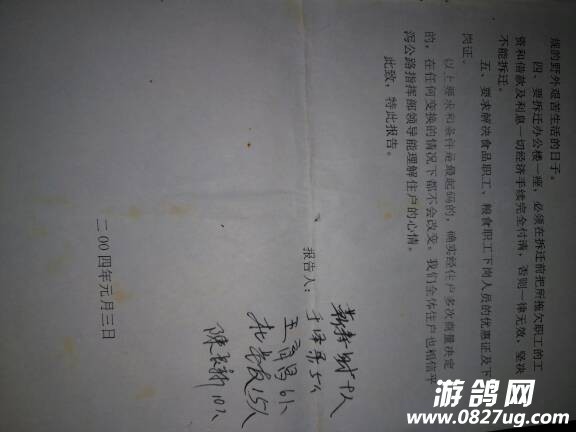 规的野外艰苦生活的日子。
四、要拆迁办公楼一座，必须在拆迁前把所拖欠职工的工
资和借款及利息一切经济手续完全付清，否则一律无效，坚决
不能拆迁。
五、要求解决食品职工、粮食职工下岗人员的优惠证及下
岗证。
以上要求和条件是最起码的，确实经住户多次商量决定
的，在任何变换的情况下都不会改变。我们全体住户也相信平
泻公路指挥部领导能理解住户的心情。
此致，特此报告。
报告人：
10人
二00四年元月三日
游鸽网
www.0827ug.com